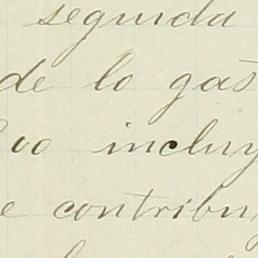 segunda
de lo gas
incluy
e contribu